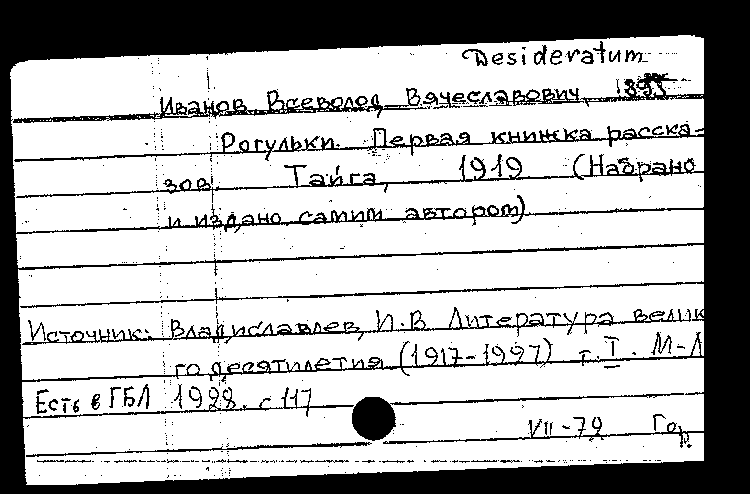 Desideratum
Иванов, Всеволод Вячеславович, 1895
Рогульки. Первая книжка расска-
зов. Тайга, 1919 (Набрано
и издано самим автором)
Источник: Владиславлев, И.В. Литература велик
го десятилетия (1917-1927) т. I. М-Л
Есть в ГБЛ 1928. с 117
VII-79 Гор.